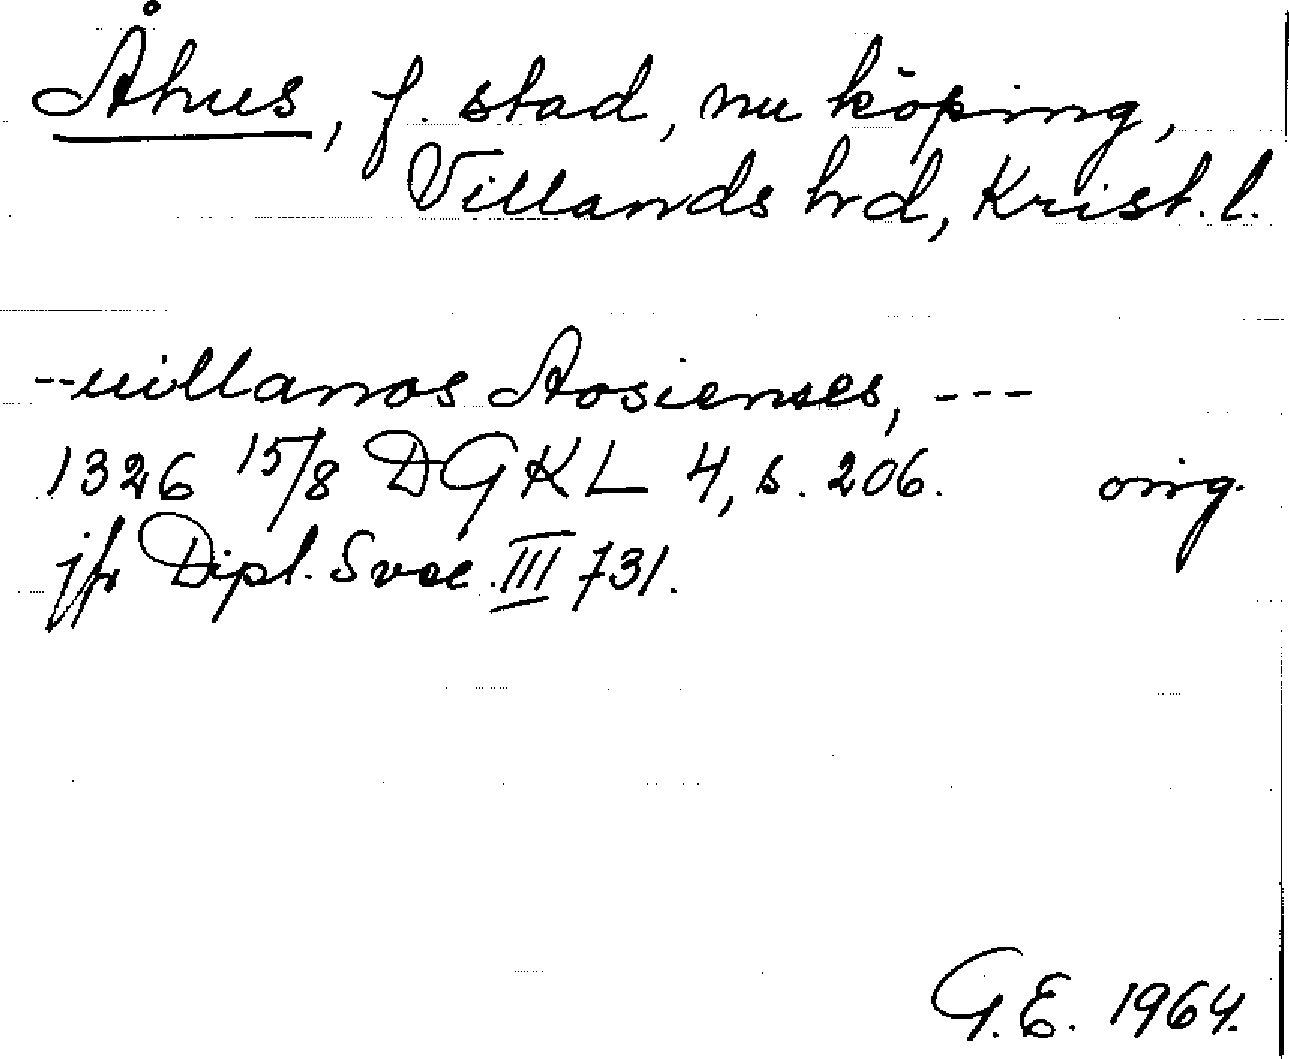 Åhus, f. stad, nu köping,
Villands hrd, Krist. l.
--uillanos Aosienses, ---
1326 15/8 DGKL 4, s. 206. orig.
jfr Dipl. Svec. III 731.
G.E. 1964.